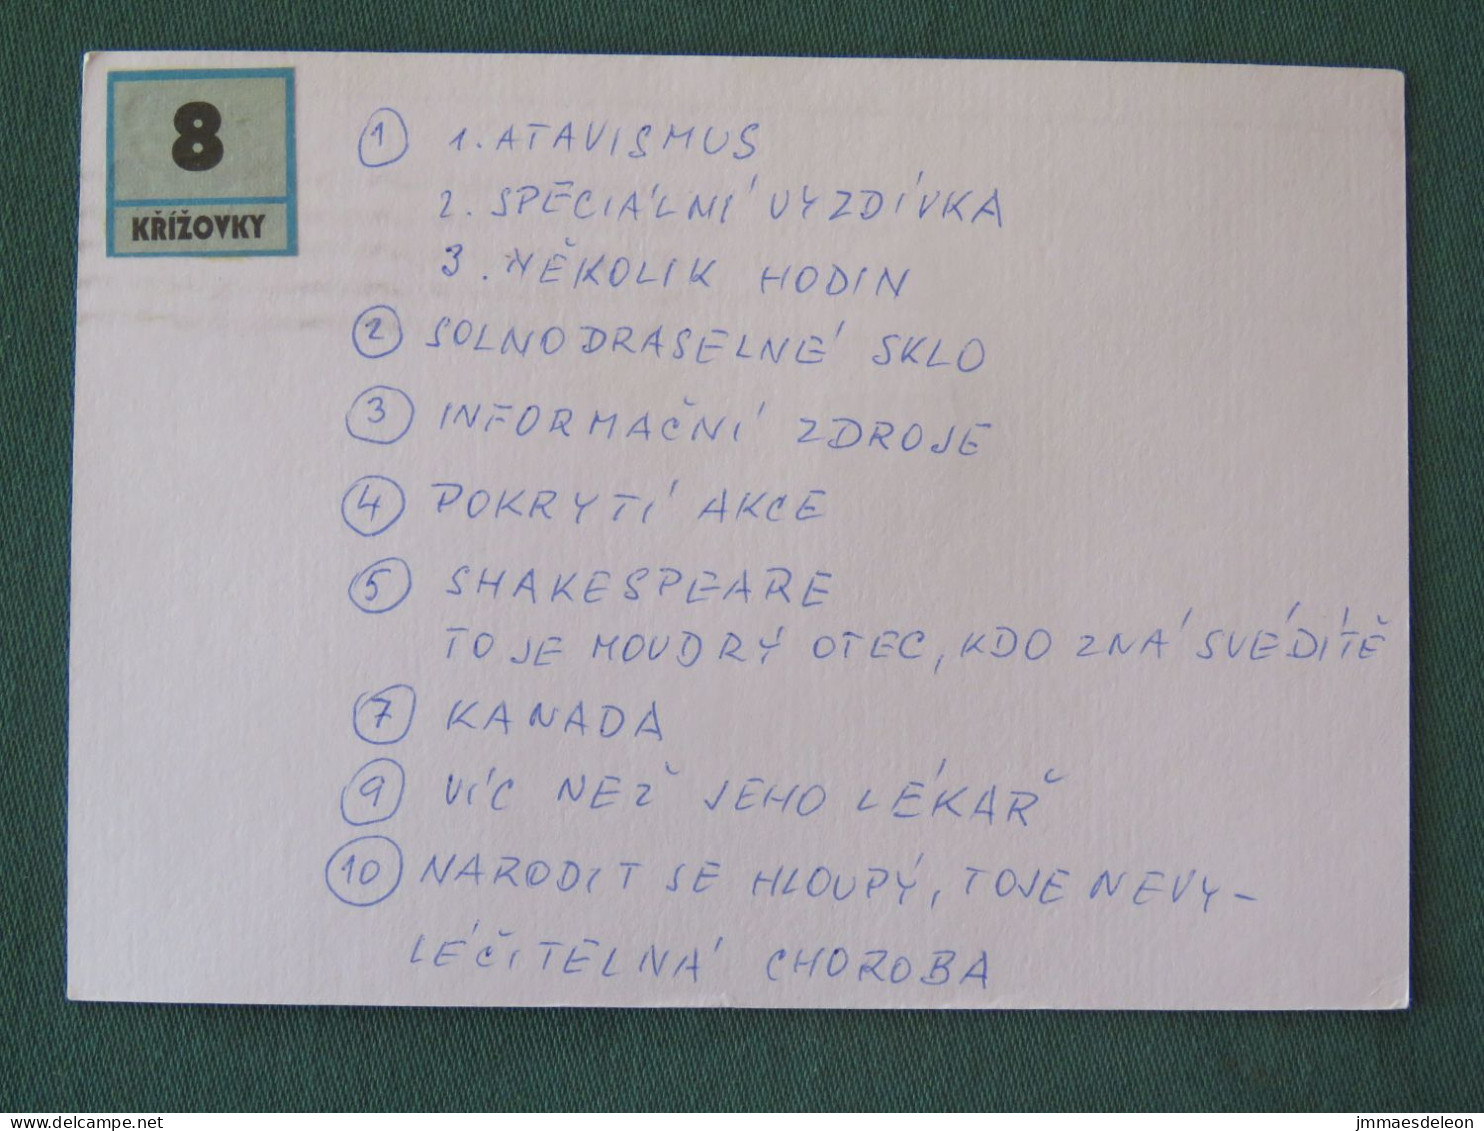 8
KŘÍŽOVKY
① 1. ATAVISMUS
2. SPECIÁLNÍ VYZDÍVKA
3. NĚKOLIK HODIN
② SOLNODRASELNÉ SKLO
③ INFORMAČNÍ ZDROJE
④ POKRYTÍ AKCE
⑤ SHAKESPEARE
TO JE MOUDRÝ OTEC, KDO ZNÁ SVÉ DÍTĚ
⑦ KANADA
⑨ VÍC NEŽ JEHO LÉKAŘ
⑩ NARODIT SE HLOUPÝ, TO JE NEVY-
LÉČITELNÁ CHOROBA
www.delcampe.net
jmmaesdeleon